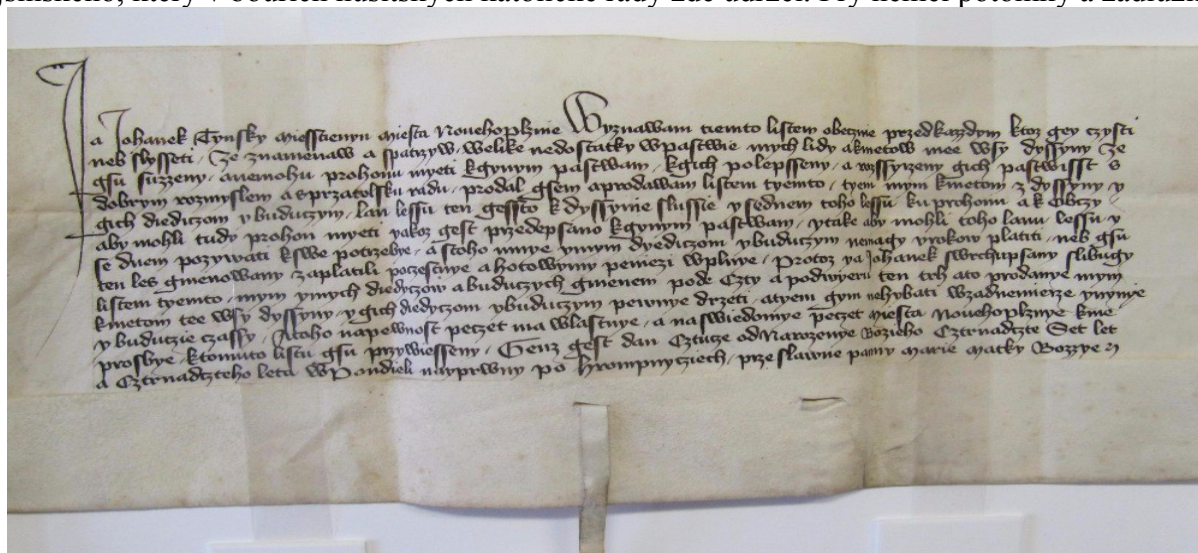 který v bouřích husitských katolické řády zde udržel.
Ja Johanek Tynsky miesstienyn miesta Nouehoplznie Wyznawam tiemto listem obecznie przedkazzdym ktoz gey czysti
neb slysseti, Ze znamenaw a spatrzyw welike nedostatky wpastwie mych lidy akmetow mee wsy dyssyny ze
gsu suzzeny, anemohu prohonu myeti kgynym pastwam, kgich polepsseny, a rozssyrzeny gich pastwisst s
dobrym rozmyslem a sprzatelsku radu, prodal gsem aprodawam listem tyemto, tyem mym kmetom z dyssyny y
gich diediczom ybuduczym, lan lessu ten gessto k dyssynie slussie y sednem toho lessu, ku prohonu a k obczy
aby mohli tudy prohon myeti yakoz gest przedepsano kgynym pastwam, ytake aby mohli toho lanu lessu y
se dnem pozywati kswe potrzebye, a stoho mnye ynym dyediczom ybuduczym nemagy vrokow platiti, neb gsu
ten les gmenowany zaplatili poczestnye a hotowymy peniezi wplnye, Protoz ya Johanek swrchupsany slibugy
listem tyemto, mym ymych diediczow abuduczych gmenem pode Czty a podwyeru ten trh ato prodanye mym
kmetom tee wsy dyssyny, y gich diediczom ybuduczym pewnye drzeti, atyem gym nehybati wzadnemierze ynynye
y buduczie czassy, Atoho napewnost peczet ma wlastnye, a naswiedomye peczet miesta Nouehoplznye kme
prosbye, ktomuto listu gsu przywiesseny, Genz gest dan Cztucze odNarozenye Bozieho Cztrnadczte Set let
a Cztrnadczteho leta wPondieli nayprwny po hrompnyciech, przeslawne panny Marie Matky Bozzye